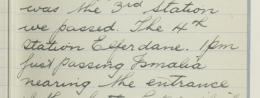 was the 3rd Station
we passed. The 4th
Station Elferdane. 1pm
just passing Ismalia
nearing the entrance